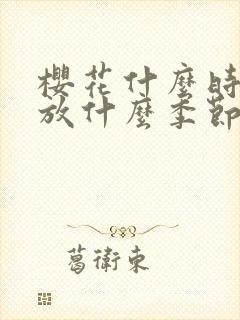 櫻花什麼時
放什麼季節
葛衛東